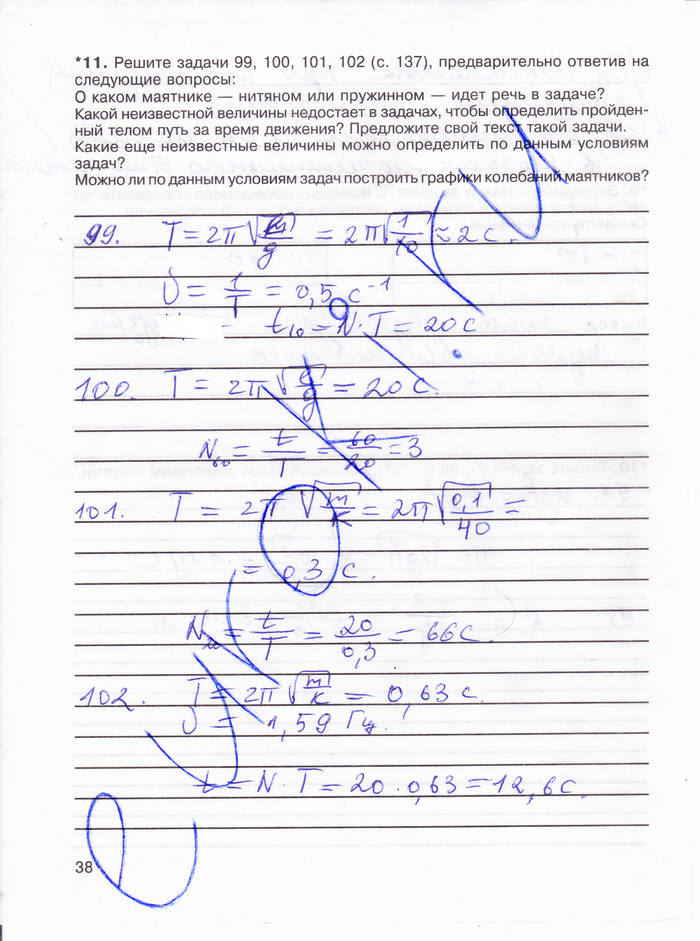 *11. Решите задачи 99, 100, 101, 102 (с. 137), предварительно ответив на
следующие вопросы:
О каком маятнике — нитяном или пружинном — идет речь в задаче?
Какой неизвестной величины недостает в задачах, чтобы определить пройден-
ный телом путь за время движения? Предложите свой текст такой задачи.
Какие еще неизвестные величины можно определить по данным условиям
задач?
Можно ли по данным условиям задач построить графики колебаний маятников?
99. T = 2π√(ℓ/g) = 2π√(1/10) ≈ 2 с.
υ = 1/T = 0,5 с⁻¹
t₁₀ = N·T = 20 с
100. T = 2π√(ℓ/g) = 20 с.
N₆₀ = t/T = 60/20 = 3
101. T = 2π√(m/k) = 2π√(0,1/40) =
= 0,3 с.
N₂₀ = t/T = 20/0,3 = 66 с.
102. T = 2π√(m/k) = 0,63 с.
υ = 1,59 Гц.
t = N·T = 20·0,63 = 12,6 с.
38